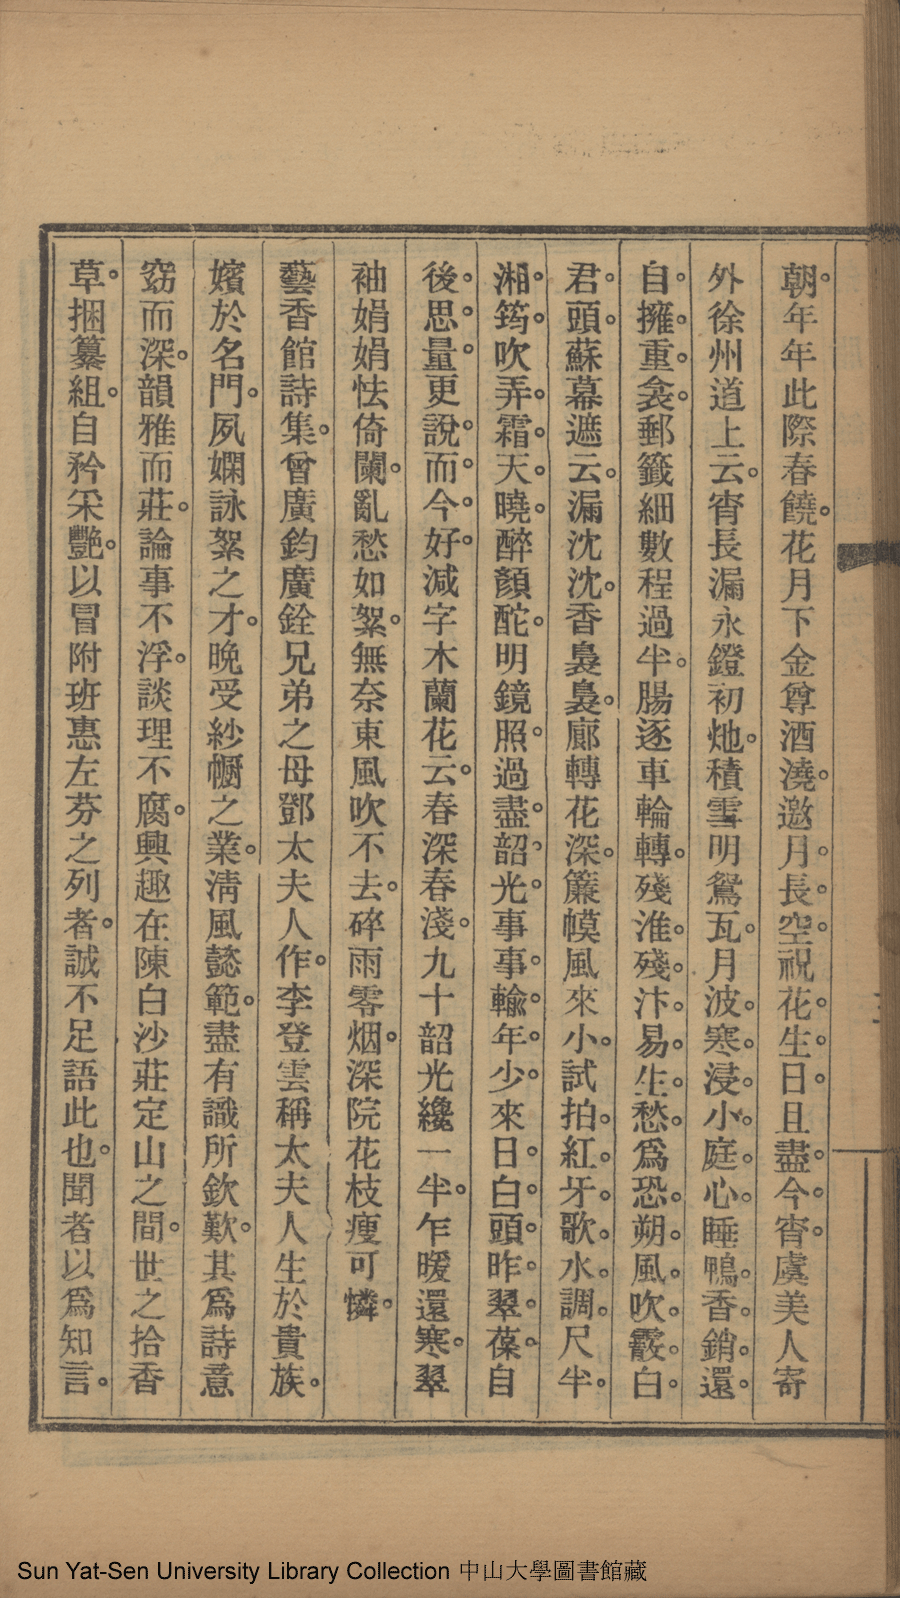 朝。年年此際春饒。花月下金尊酒澆。邀月。長空。祝花。生。日。且盡。今。宵。虞美人寄
外徐州道上云。宵長漏永鐙初灺。積雪明鴛瓦。月波。寒。浸。小。庭。心。睡鴨。香。銷。還。
自。擁。重。衾。郵籤細數程過半。腸逐車輪轉。殘淮。殘。汴。易。生。愁。爲恐。朔。風。吹。霰。白。
君。頭。蘇幕遮云。漏沈沈。香裊裊。廊轉花深。簾幙風來小。試拍。紅。牙。歌。水。調。尺半。
湘。筠。吹弄。霜。天。曉。醉顏酡。明鏡照。過盡。韶。光。事事。輸。年。少。來日。白。頭。昨。翠。葆。自
後。思。量。更說。而。今。好。減字木蘭花云。春深春淺。九十韶光纔一半。乍暖還寒。翠
袖娟娟怯倚闌。亂愁如絮。無奈東風吹不去。碎雨零烟。深院花枝瘦可憐。
藝香館詩集。曾廣鈞廣銓兄弟之母鄧太夫人作。李登雲稱太夫人生於貴族。
嬪於名門。夙嫻詠絮之才。晚受紗幮之業。淸風懿範。盡有識所欽歎。其爲詩意
窈而深。韻雅而莊。論事不浮。談理不腐。興趣在陳白沙莊定山之間。世之拾香
草。捆纂組。自矜采豔。以冒附班惠左芬之列者。誠不足語此也。聞者以爲知言。
Sun Yat-Sen University Library Collection 中山大學圖書館藏